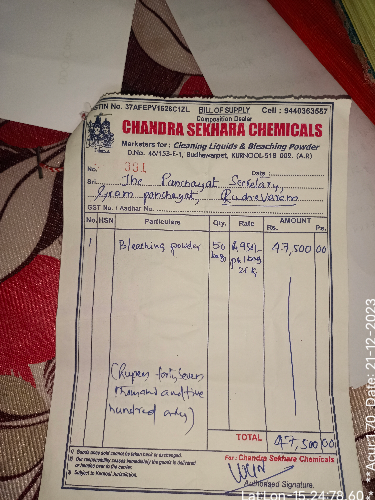 GSTIN No. 37AFEPV1626C1ZL BILL OF SUPPLY Cell : 9440363587
Composition Dealer
CHANDRA SEKHARA CHEMICALS
Marketers for : Cleaning Liquids & Bleaching Powder
D.No. 46/153-E-1, Budhawarpet, KURNOOL-518 002. (A.P)
No. 351 Date :
Sri The Panchayat Secretary,
Gram panchayat,
GST No. / Aadhar No.
No. HSN Particulars Qty. Rate AMOUNT
Rs. Ps.
1 Bleaching powder 50 bags 47,500 00
(Rupees forty seven
thousand and five
hundred only)
TOTAL 47,500 00
1) Goods once sold cannot be taken back or exchanged.
2) Our responsibility ceases immediately the goods is delivered
or handed over to the carrier.
3) Subject to Kurnool Jurisdiction.
For : Chandra Sekhara Chemicals
Authorised Signature.
Date: 21-12-2023